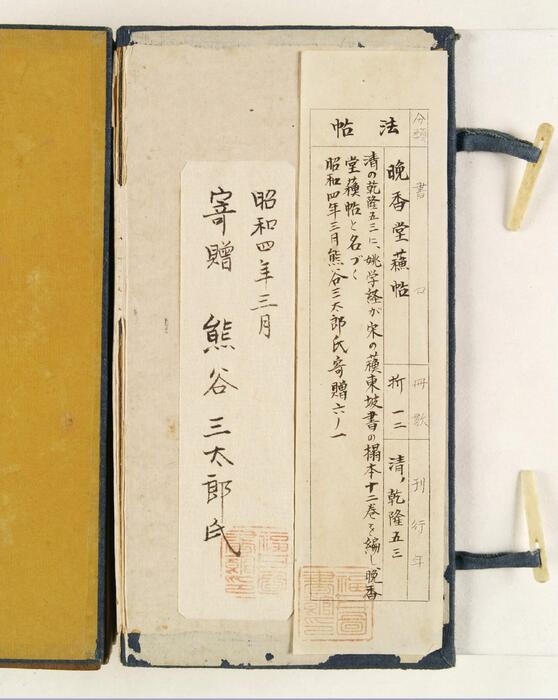 分類
書名
冊数
刊行年
法帖
晩香堂蘓帖
折一二
清、乾隆五三
清の乾隆五三に、姚学経が宋の蘓東坡書の搨本十二巻を編し晩香
堂蘓帖と名づく
昭和四年三月熊谷三太郎氏寄贈六ノ一
昭和四年三月
寄贈 熊谷三太郎氏